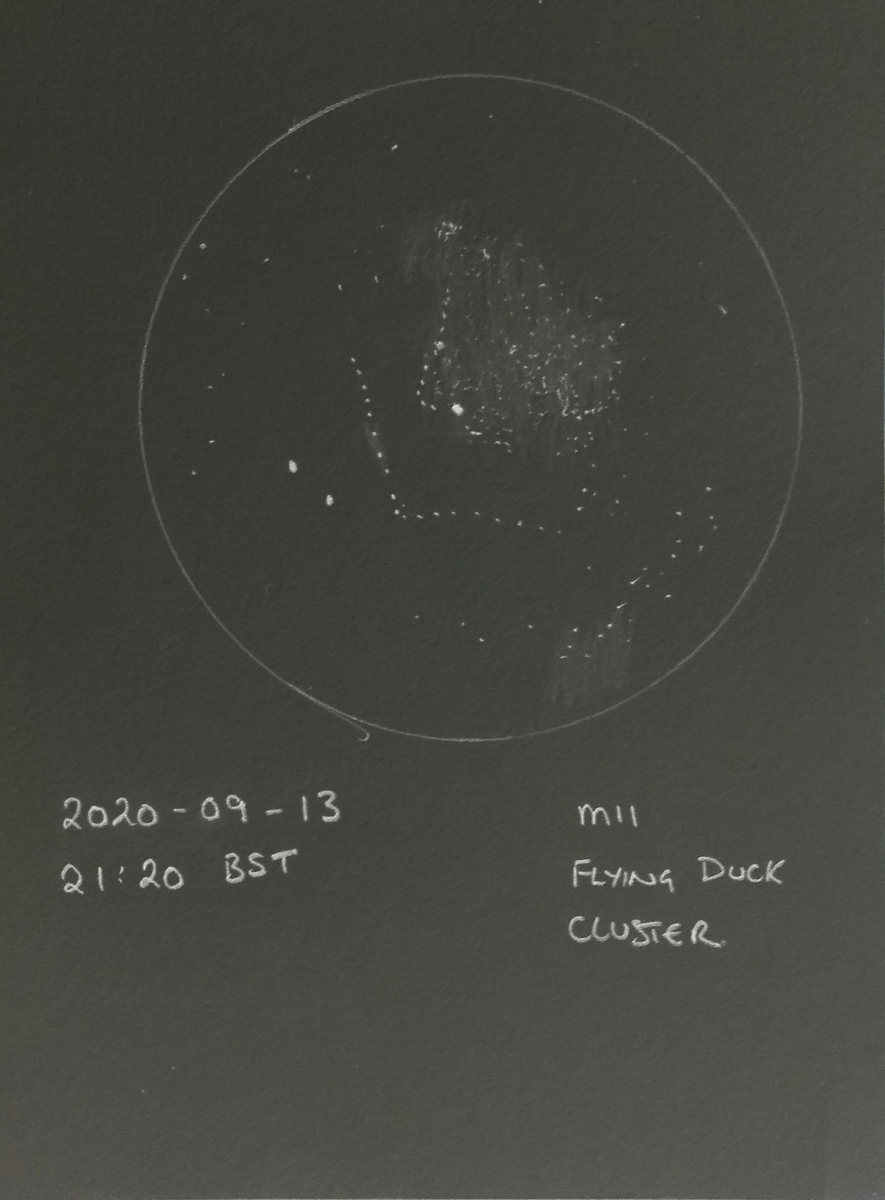 2020-09-13
21:20 BST
M11
FLYING DUCK
CLUSTER.